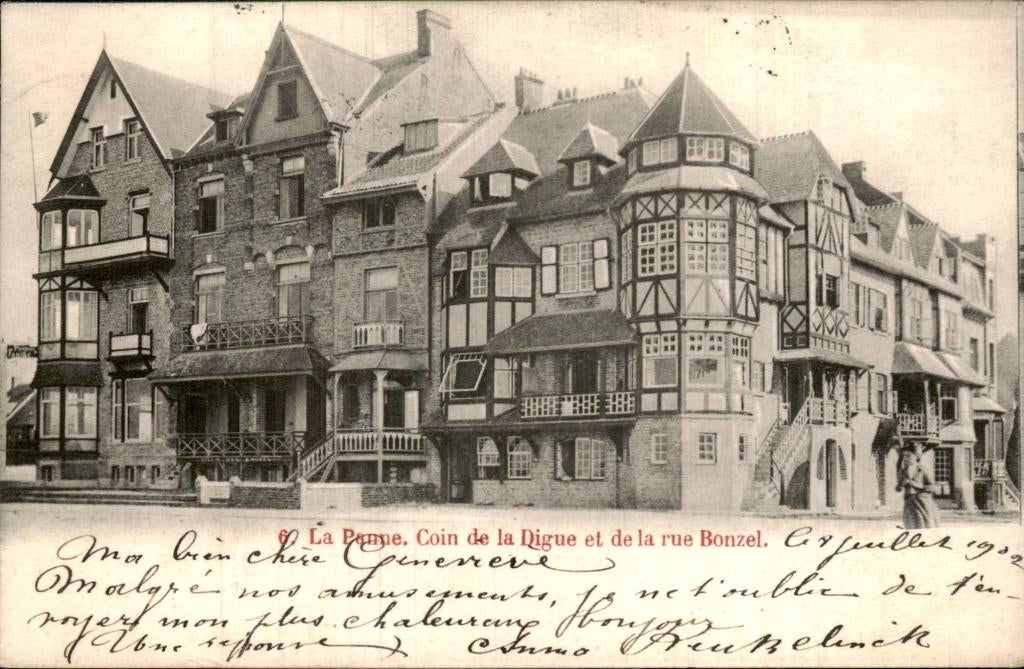 6. La Panne. Coin de la Digue et de la rue Bonzel.
Ma bien chère Geneviève Le 8 juillet 1902
Malgré nos amusements, je ne t'oublie de t'en-
voyer mon plus chaleureux bonjour
Une réponse Emma